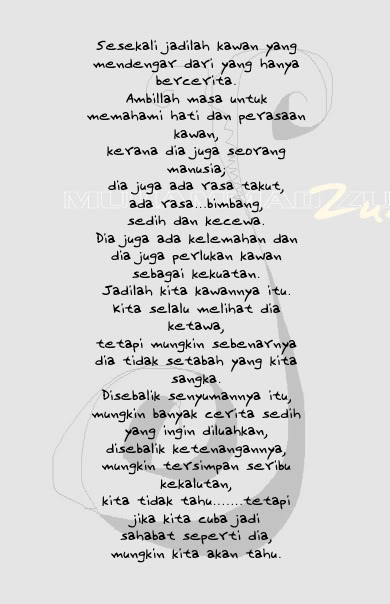 Sesekali jadilah kawan yang
mendengar dari yang hanya
bercerita.
Ambillah masa untuk
memahami hati dan perasaan
kawan,
kerana dia juga seorang
manusia;
dia juga ada rasa takut,
ada rasa...bimbang,
sedih dan kecewa.
Dia juga ada kelemahan dan
dia juga perlukan kawan
sebagai kekuatan.
Jadilah kita kawannya itu.
Kita selalu melihat dia
ketawa,
tetapi mungkin sebenarnya
dia tidak setabah yang kita
sangka.
Disebalik senyumannya itu,
mungkin banyak cerita sedih
yang ingin diluahkan,
disebalik ketenangannya,
mungkin tersimpan seribu
kekalutan,
kita tidak tahu.......tetapi
jika kita cuba jadi
sahabat seperti dia,
mungkin kita akan tahu.